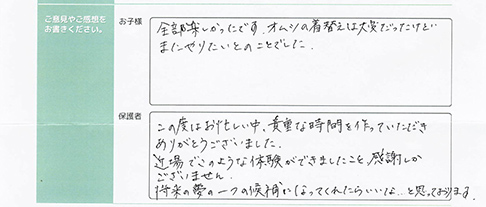 ご意見やご感想を
お書きください。
お子様
全部楽しかったです。オムツの着替えは大変だったけど
またやりたいとのことでした。
保護者
この度はお忙しい中、貴重な時間を作っていただき
ありがとうございました。
近場でこのような体験ができましたこと、感謝しか
ございません。
将来の夢の一つの候補になってくれたらいいな…と思っております。